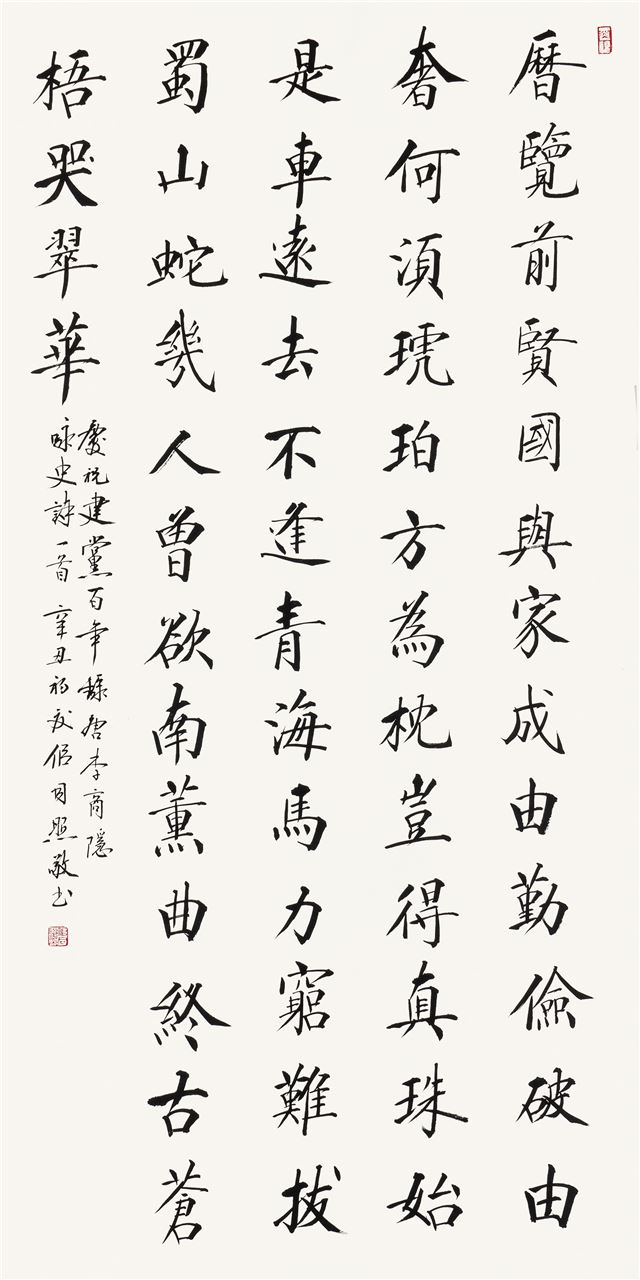 曆覽前賢國與家成由勤儉破由
奢何須琥珀方為枕豈得真珠始
是車遠去不逢青海馬力窮難拔
蜀山蛇幾人曾欲南薰曲終古蒼
梧哭翠華
慶祝建黨百年錄唐李商隱
咏史詩一首辛丑初夏同照敬书